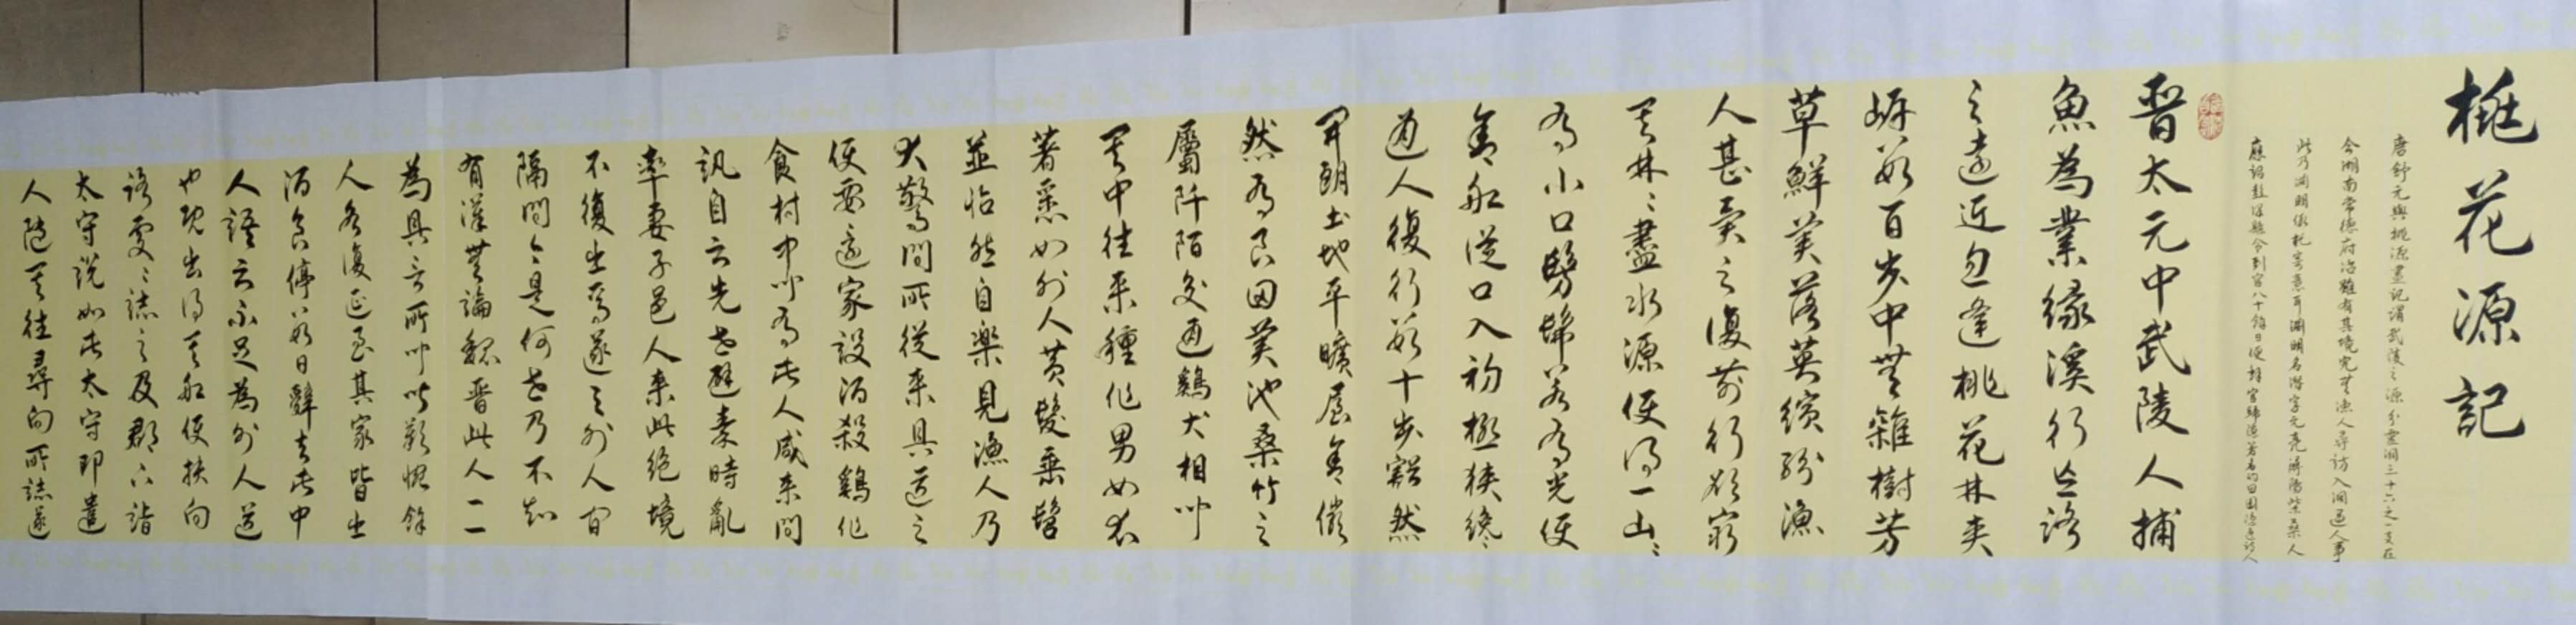 桃花源記
唐舒元輿桃源畫記謂武陵之源分靈洞三十六之一支在
今湖南常德府治雖有其境究無漁人尋訪入洞遇人事
此乃淵明依托寄意耳淵明名潛字元亮潯陽柴桑人
縣令到官八十餘日便
晉太元中武陵人捕
魚為業緣溪行忘路
之遠近忽逢桃花林夾
岸數百步中無雜樹芳
草鮮美落英繽紛漁
人甚異之復前行欲窮
其林〻盡水源便得一山〻
有小口髣髴若有光便
舍船從口入初極狹纔
通人復行數十步豁然
開朗土地平曠屋舍儼
然有良田美池桑竹之
屬阡陌交通鷄犬相聞
其中往來種作男女衣
著悉如外人黃髮垂髫
並怡然自樂見漁人乃
大驚問所從來具道之
便要還家設酒殺鷄作
食村中聞有此人咸來問
訊自云先世避秦時亂
率妻子邑人來此絕境
不復出焉遂與外人間
隔問〻是何世乃不知
有漢無論魏晉此人一一
為具言所聞皆歎惋餘
人各復延至其家皆出
酒食停數日辭去此中
人語云不足為外人道
也既出得其船便扶向
路處〻誌之及郡下詣
太守說如此太守即遣
人隨其往尋向所誌遂